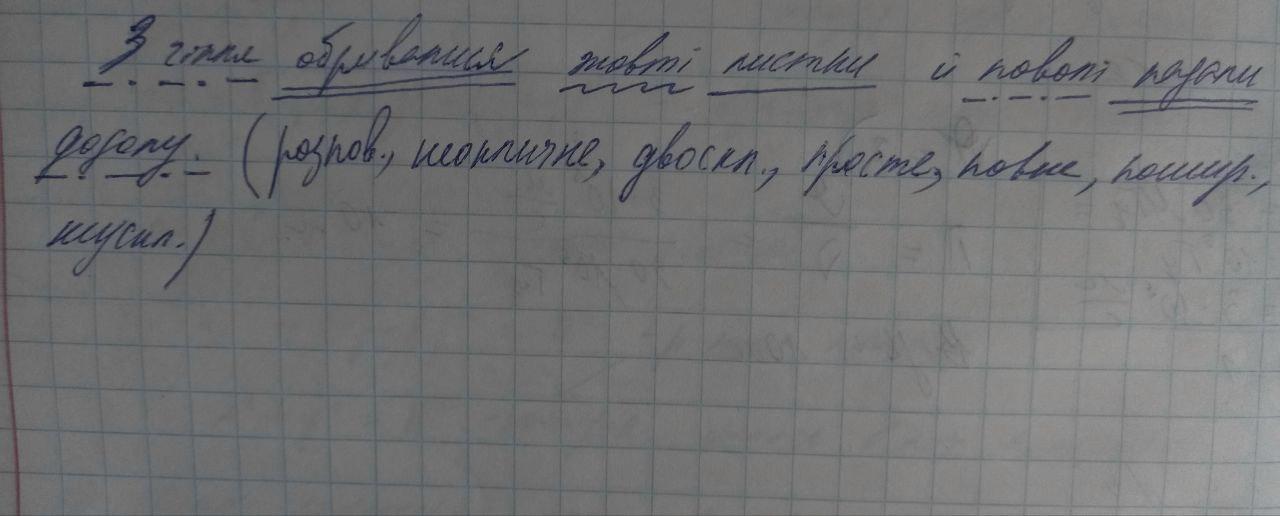 З гілля обривалися жовті листки й поволі падали
додолу. (розпов., неокличне, двоскл., просте, повне, пошир.,
неускл.)